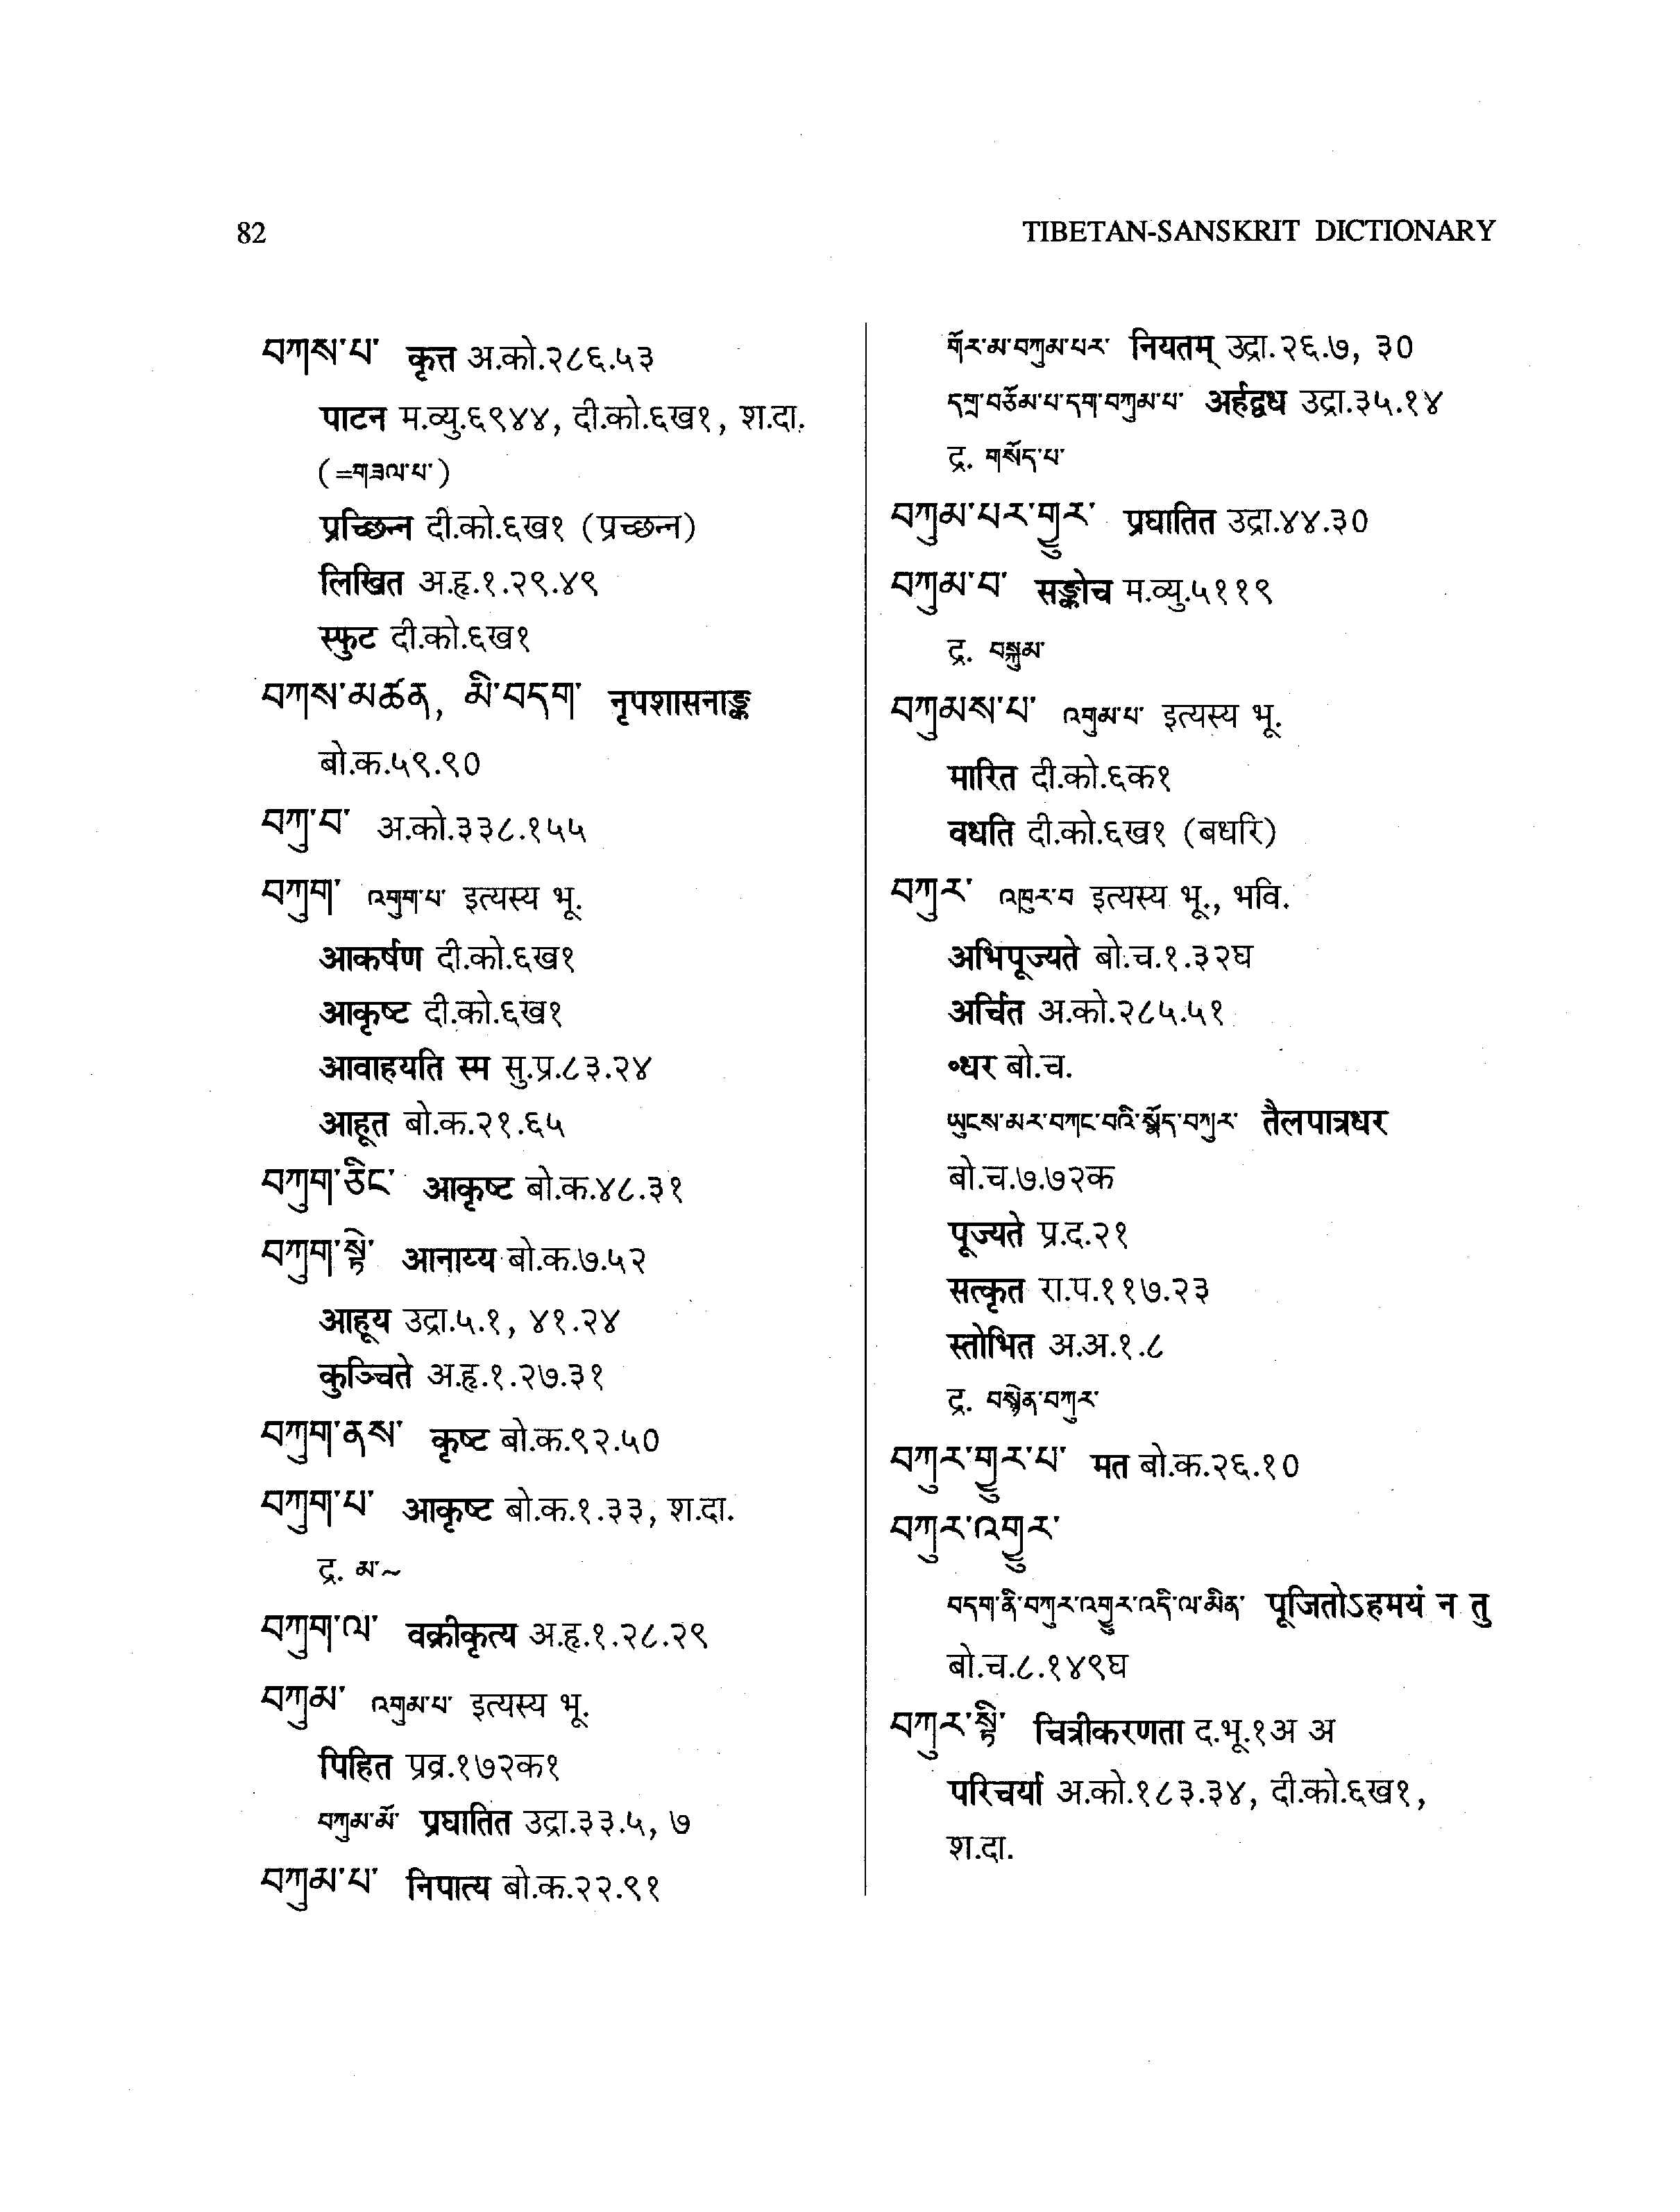 82
TIBETAN-SANSKRIT DICTIONARY
བཀས་པ་ कृत्त अ.को.२८६.५३
पाटन म.व्यु.६९४४, दी.को.६ख१, श.दा.
(=གཟལ་པ་)
प्रच्छिन्न दी.को.६ख१ (प्रच्छन्न)
लिखित अ.हृ.१.२९.४९
स्फुट दी.को.६ख१
བཀས་མཚན, མི་བདག་ नृपशासनाङ्क
बो.क.५९.९०
བཀུ་བ་ अ.को.३३८.१५५
བཀུག་ འགུག་པ་ इत्यस्य भू.
आकर्षण दी.को.६ख१
आकृष्ट दी.को.६ख१
आवाहयति स्म सु.प्र.८३.२४
आहूत बो.क.२१.६५
བཀུག་ཅིང་ आकृष्ट बो.क.४८.३१
བཀུག་སྟེ་ आनाय्य बो.क.७.५२
आहूय उद्रा.५.१, ४१.२४
कुञ्चिते अ.हृ.१.२७.३१
བཀུག་ནས་ कृष्ट बो.क.९२.५०
བཀུག་པ་ आकृष्ट बो.क.१.३३, श.दा.
द्र. མ་~
བཀུག་ལ་ वक्रीकृत्य अ.हृ.१.२८.२९
བཀུམ་ འགུམ་པ་ इत्यस्य भू.
पिहित प्रव्र.१७२क१
བཀུམ་མོ་ प्रघातित उद्रा.३३.५, ७
བཀུམ་པ་ निपात्य बो.क.२२.९१
གོར་མ་བཀུམ་པར་ नियतम् उद्रा.२६.७, ३०
དགྲ་བཅོམ་པ་དག་བཀུམ་པ་ अर्हद्वध उद्रा.३५.१४
द्र. གསོད་པ་
བཀུམ་པར་གྱུར་ प्रघातित उद्रा.४४.३०
བཀུམ་བ་ सङ्कोच म.व्यु.५११९
द्र. བསྐུམ་
བཀུམས་པ་ འགུམ་པ་ इत्यस्य भू.
मारित दी.को.६क१
वधति दी.को.६ख१ (बधरि)
བཀུར་ འཁུར་བ इत्यस्य भू., भवि.
अभिपूज्यते बो.च.१.३२घ
अर्चित अ.को.२८५.५१
॰धर बो.च.
ཡུངས་མར་བཀང་བའི་སྣོད་བཀུར་ तैलपात्रधर
बो.च.७.७२क
पूज्यते प्र.द.२१
सत्कृत रा.प.११७.२३
स्तोभित अ.अ.१.८
द्र. བསྙེན་བཀུར་
བཀུར་གྱུར་པ་ मत बो.क.२६.१०
བཀུར་འགྱུར་
བདག་ནི་བཀུར་འགྱུར་འདི་ལ་མིན་ पूजितोऽहमयं न तु
बो.च.८.१४९घ
བཀུར་སྟི་ चित्रीकरणता द.भू.१अ अ
परिचर्या अ.को.१८३.३४, दी.को.६ख१,
श.दा.